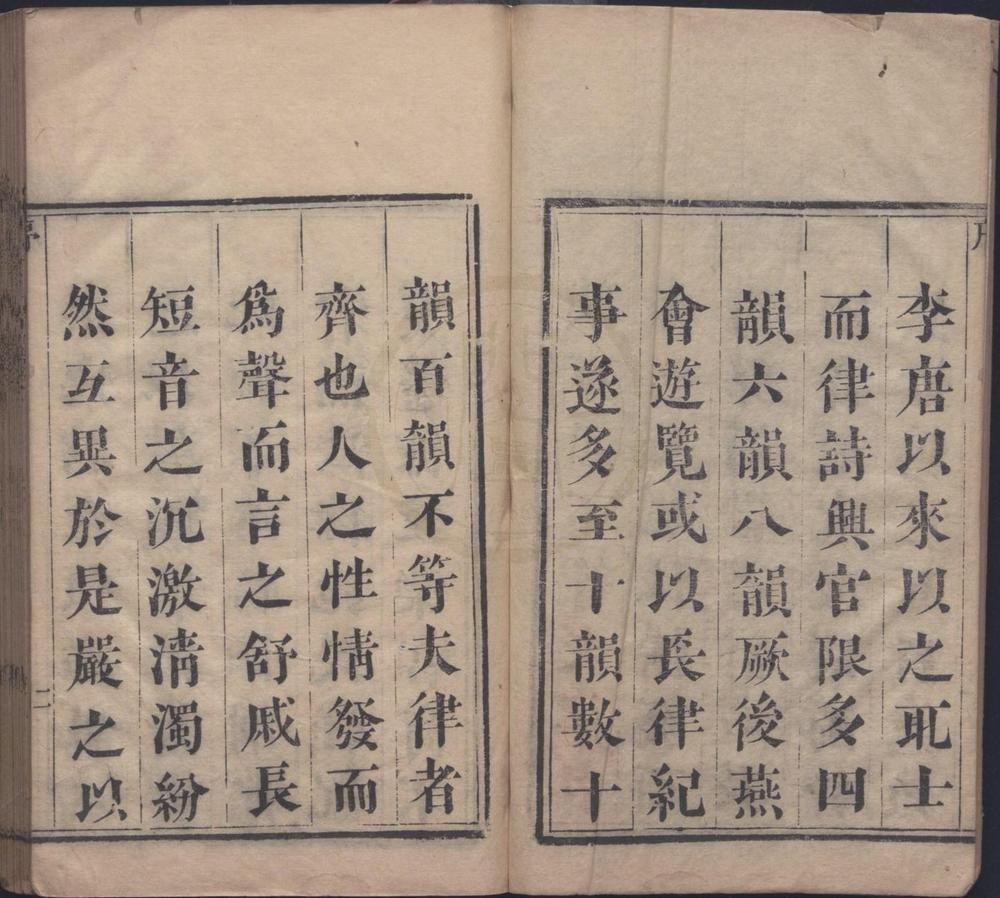 李唐以來以之取士
而律詩興官限多四
韻六韻八韻厥後燕
會遊覽或以長律紀
事遂多至十韻數十
韻百韻不等夫律者
齊也人之性情發而
為聲而言之舒戚長
短音之沉激淸濁紛
然互異於是嚴之以
二